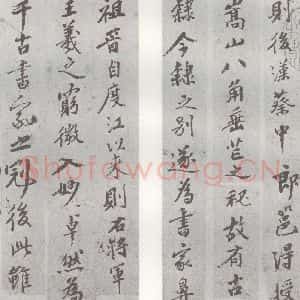 則後漢蔡中郎邕得授
嵩山八角垂芒之祕故有古
隸今隸之別遂為書家鼻
祖晉自度江以來則右將軍
王羲之窮微入妙卓然為
千古書家之冠後此雖
Shufawang.CN